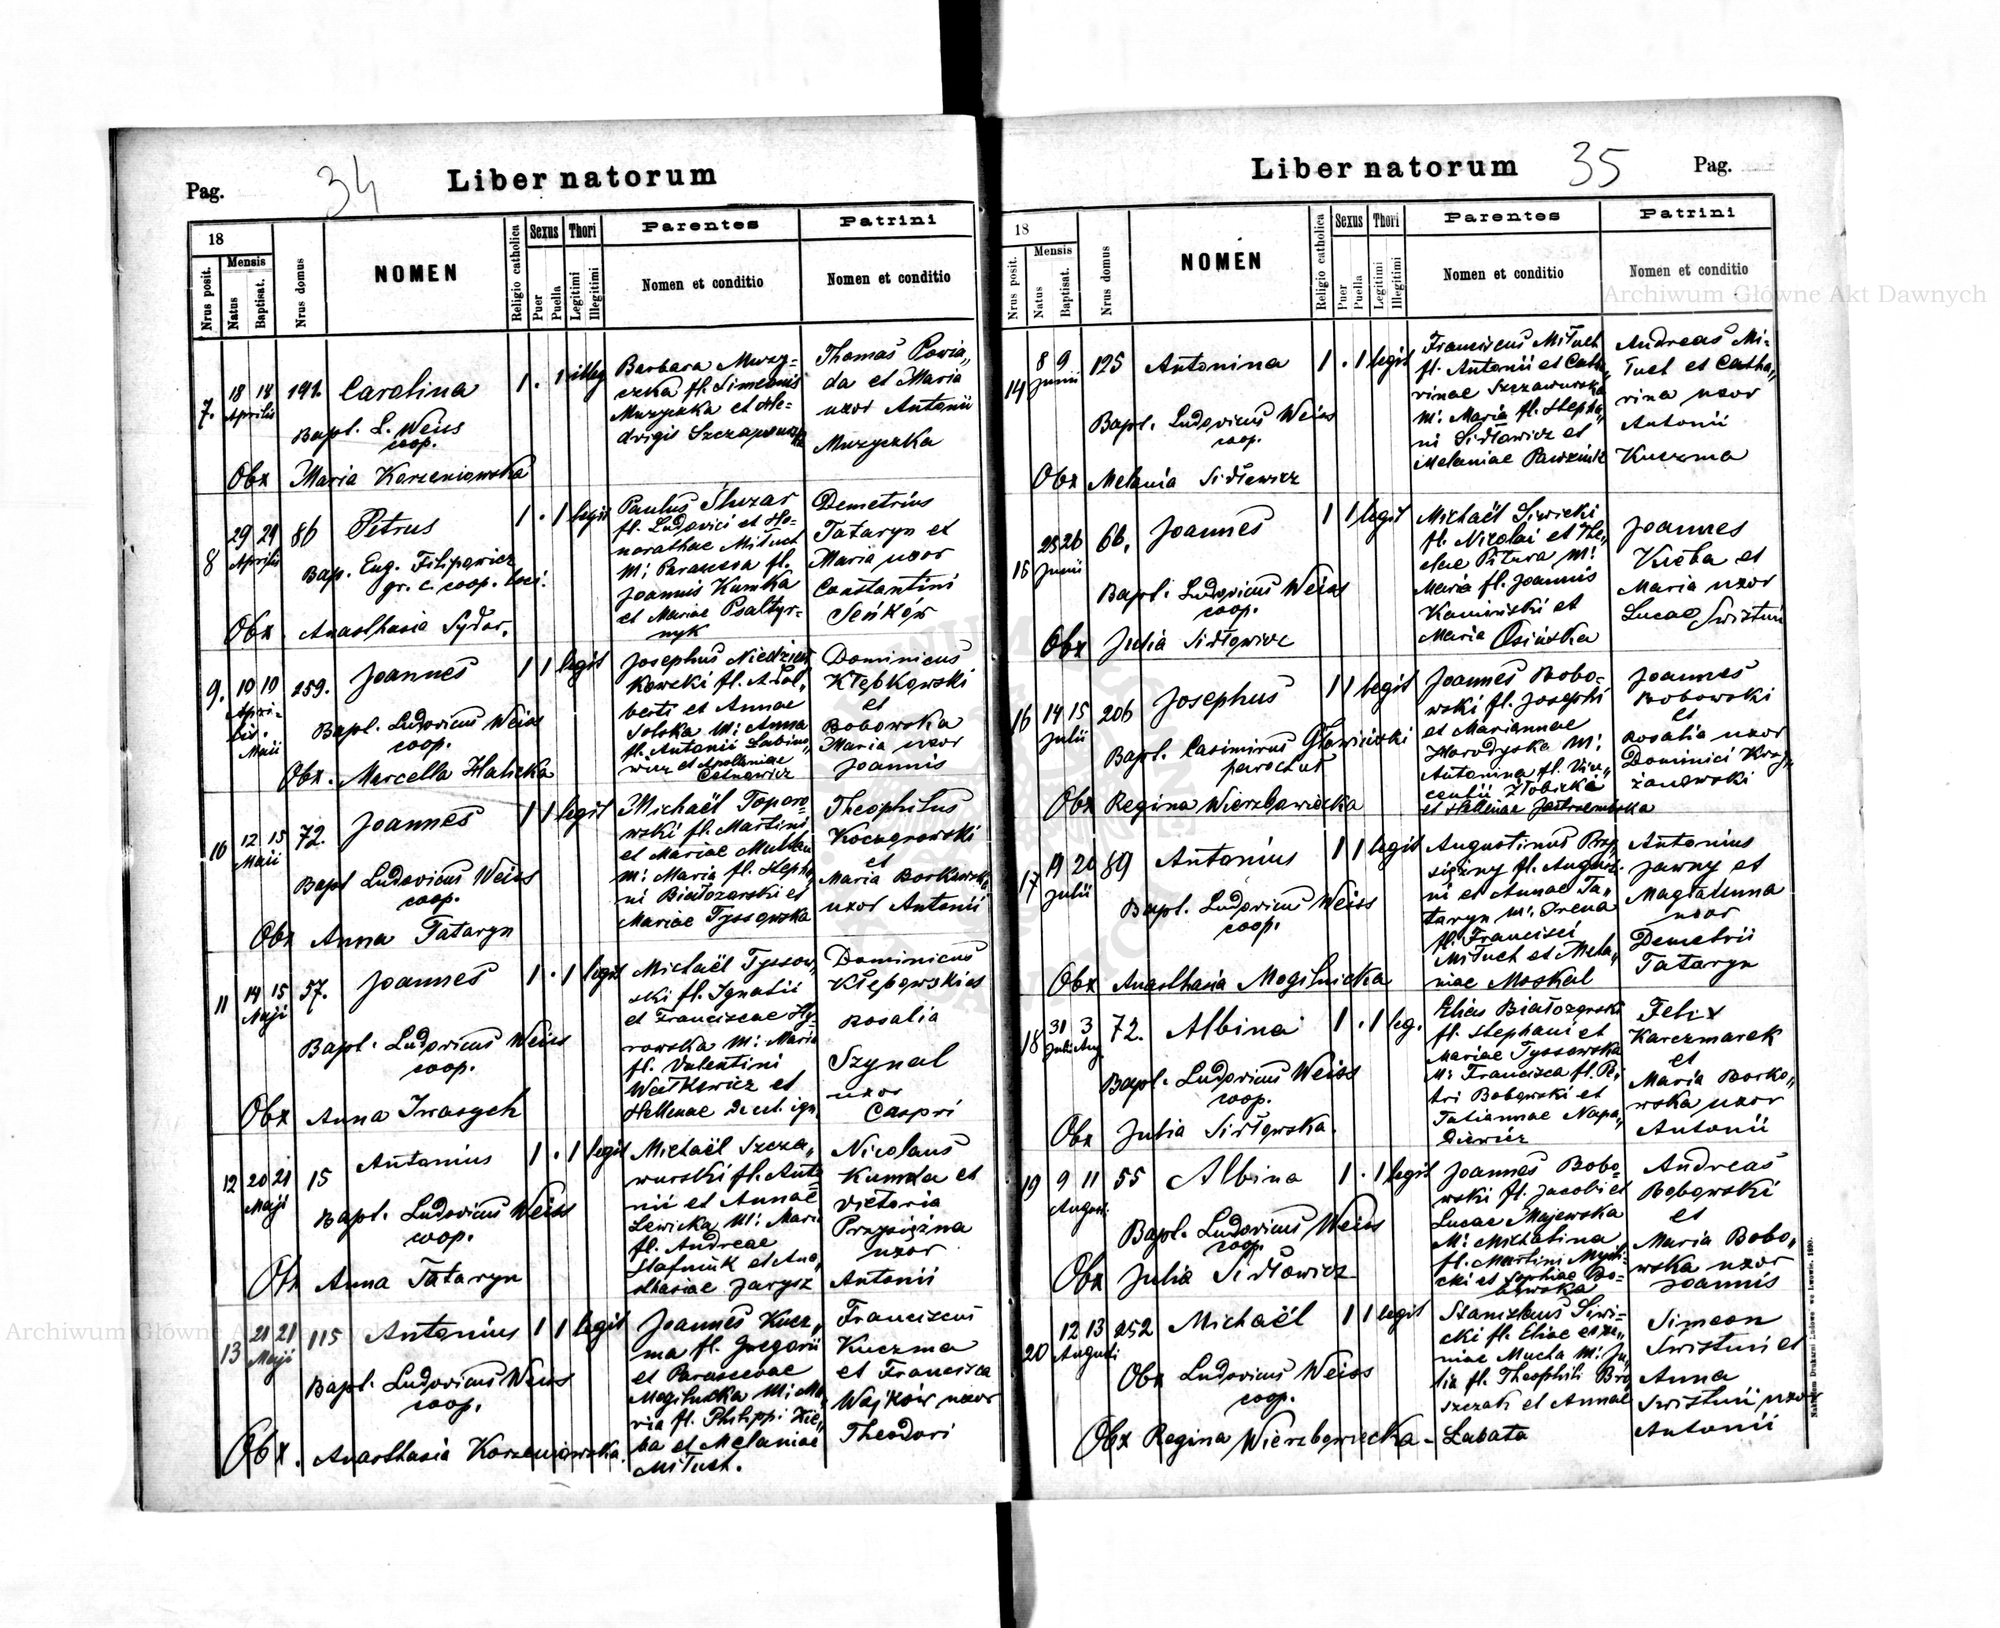 Pag. 34 Liber natorum
18
Mensis
Nrus posit.
Natus
Baptisat.
Nrus domus
NOMEN
Religio catholica
Sexus
Puer
Puella
Thori
Legitimi
Illegitimi
Parentes
Nomen et conditio
Patrini
Nomen et conditio
7. 18 18 Aprilis 191. Carolina 1 . 1 illeg
Bapt. L. Weiss
coop.
Obx Maria Korzeniowska
Barbara Muzy-
czka fl. Simeonis
Muzyczka et He-
dvigis
Thomas Powia„
da et Maria
uxor Antonii
Muzyczka
8 29 29 Aprilis 86 Petrus 1 . 1 legit
Bap. Eug. Filipowicz
gr. c. coop. loci.
Obx. Anasthasia Sydor.
Paulus Śluzar
fl. Ludovici et Ho-
norathae Miłuch
M: Parascesa fl.
Joannis Kumka
et Mariae Psaltyr-
nyk
Demetrius
Tataryn et
Maria uxor
Constantini
Seńków
9. 19 19 Apri-
lis.
Maii
259. Joannes 1 1 legit
Bapt. Ludovicus Weiss
coop.
Obx. Marcella Halicka
Josephus
kowski fl. Adal„
berti et Annae
Solska M: Anna
fl. Antonii
wicz et Apolloniae
Dominicus
Kłębkowski
et
Bobowska
Maria uxor
Joannis
10 12 15 Maii 72. Joannes 1 1 legit
Bapt Ludovicus Weiss
coop.
Obx Anna Tataryn
Michaël Toporo-
wski fl. Martini
et Mariae
M: Maria fl. Steph„
ni Białozorski et
Mariae Tyssowska
Theophilus
et
Maria Borkowska
uxor Antonii
11 14 15 Maji 57. Joannes 1 . 1 legit
Bapt. Ludovicus Weiss
coop.
Obx Anna Iwasych
Michaël Tyssow„
ski fl. Ignatii
et Franciscae Hy-
rowska M: Maria
fl. Valentini
et
Hellenae
Dominicus
Rosalia
Szynal
uxor
Caspri
12 20 21 Maji 15 Antonius 1 . 1 legit
Bapt. Ludovicus Weiss
coop.
Obx Anna Tataryn
Michaël Szcza„
wurski fl. Anto
nii et Annae
Lewicka M: Maria
fl. Andreae
Stafiniuk et Ana„
sthasiae Jarysz
Nicolaus
Kumka et
Victoria
Przysiężna
uxor
Antonii
13 21 21 Maji 115 Antonius 1 1 legit
Bapt. Ludovicus Weiss
coop.
Obx. Anasthasia Korzeniowska.
Joannes Kucz„
ma fl. Gregorii
et Parascevae
Mogilnicka M: Ma
ria fl. Philippi Kie„
ba et Melaniae
Miłuch.
Franciscus
Kuczma
et Francisca
Wajków uxor
Theodori
Liber natorum 35 Pag.
18
Mensis
Nrus posit.
Natus
Baptisat.
Nrus domus
NOMEN
Religio catholica
Sexus
Puer
Puella
Thori
Legitimi
Illegitimi
Parentes
Nomen et conditio
Patrini
Nomen et conditio
14 8 9 Junii 125 Antonina 1 . 1 legit
Bapt. Ludovicus Weiss
coop.
Obx Melania Sidłewicz
Franciscus Miłuch
fl. Antonii et Catha„
rinae Szczawurska
M: Maria fl. Stepha„
ni Sidławicz et
Melaniae
Andreas Mi-
łuch et Catha„
rina uxor
Antonii
Kuczma
15 25 26 Junii 66. Joannes 1 1 legit
Bapt. Ludovicus Weiss
coop.
Obx Julia Sidłowicz
Michaël Siwicki
fl. Nicolai et The„
clae Pitura M:
Maria fl. Joannis
Kamiński et
Maria Osińska
Joannes
Kieba et
Maria uxor
Lucae Swistun
16 14 15 Julii 206 Josephus 1 1 legit
Bapt. Casimirus
parochus
Obx Regina Wierzbowiecka
Joannes Bobo-
wski fl. Josephi
et Mariannae
Horodyska M:
Antonina fl. Vin„
centii Złobicka
et Hellenae Jastrzembska
Joannes
Bobowski
et
Rosalia uxor
Dominici Krzy„
żanowski
17 19 20 Julii 89 Antonius 1 1 legit
Bapt. Ludovicus Weiss
coop.
Obx Anasthasia Mogilnicka
Augustinus Przy„
siężny fl. Augusti-
ni et Annae Ta„
taryn M: Irena
fl. Francisci
Miłuch et Mela„
niae Moskal
Antonius
Jawny et
Magdalenna
uxor
Demetrii
Tataryn
18 31 3 Julii Aug. 72. Albina 1 . 1 leg.
Bapt. Ludovicus Weiss
coop.
Obx Julia Sidłowska.
Elias Białozorski
fl. Stephani et
Mariae Tyssowska
M: Francisca fl. Pe-
tri Bobowski et
Tatiannae Napa„
diewicz
Felix
Karczmarek
et
Maria Borko„
wska uxor
Antonii
19 9 11 August. 55 Albina 1 . 1 legit
Bapt. Ludovicus Weiss
coop.
Obx Julia Sidłowicz
Joannes Bobo-
wski fl. Jacobi et
Lucae Majewska
M: Michalina
fl. Martini
cki et Sophiae Bo-
bowska
Andreas
Bobowski
et
Maria Bobo„
wska uxor
Joannis
20 12 13 Augusti 252 Michaël 1 1 legit
Obx Ludovicus Weiss
coop.
Obx Regina Wierzbowiecka -
Stanislaus Siwi-
cki fl. Eliae et Xe„
niae Mucha M: Ju„
lia fl. Theophili
et Annae
Labata
Simeon
Swistun et
Anna
Swistun uxor
Antonii
Nakładem Drukarni Ludowej we Lwowie. 1890.
Archiwum Główne Akt Dawnych
Archiwum Główne Akt Dawnych